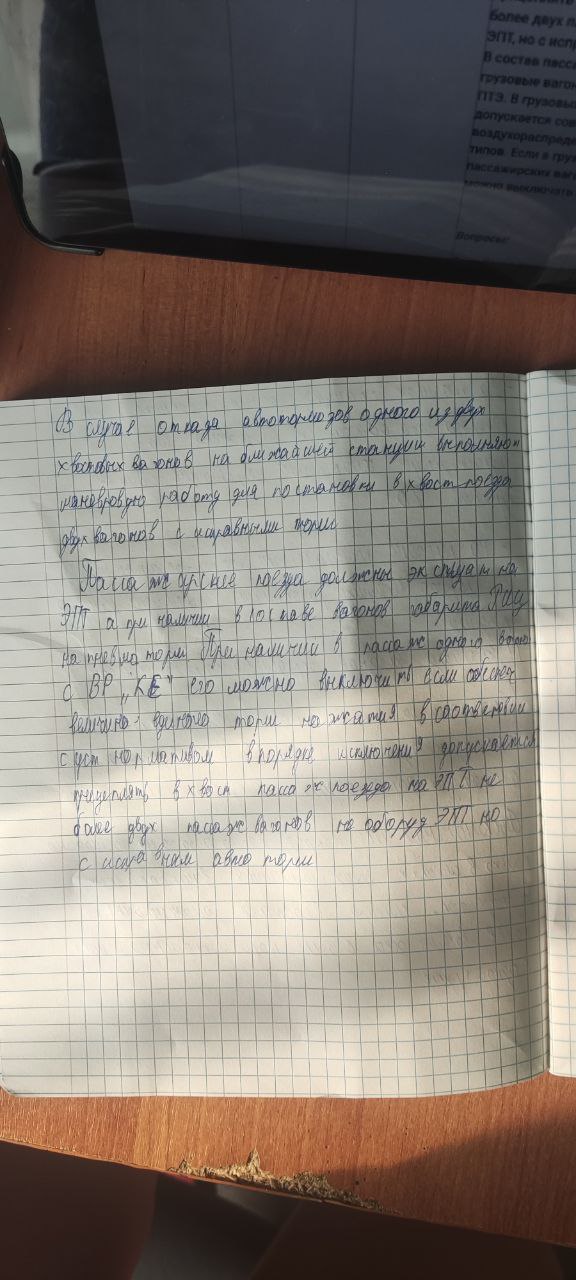 более двух п
ЭПТ, но с испр
В состав пасса
грузовые вагон
ПТЭ. В грузовых
допускается сов
воздухораспреде
типов. Если в груз
пассажирских ваго
можно выключать
Вопросы:
В случае отказа автотормозов одного из двух
хвостовых вагонов на ближайшей станции выполняют
маневровую работу для постановки в хвост поезда
двух вагонов с исправными торм
Пассажирские поезда должны эксплуат на
ЭПТ а при наличии в составе вагонов габарита РИЦ
на пневмоторм При наличии в пассаж одного вагона
с ВР „КЕ" его можно выключить если обеспеч
величина единого торм нажатия в соответствии
с уст нормативом в порядке исключения допускается
прицеплять в хвост пассаж поезда на ЭПТ не
более двух пассаж вагонов не оборуд ЭПТ но
с исправным авто торм